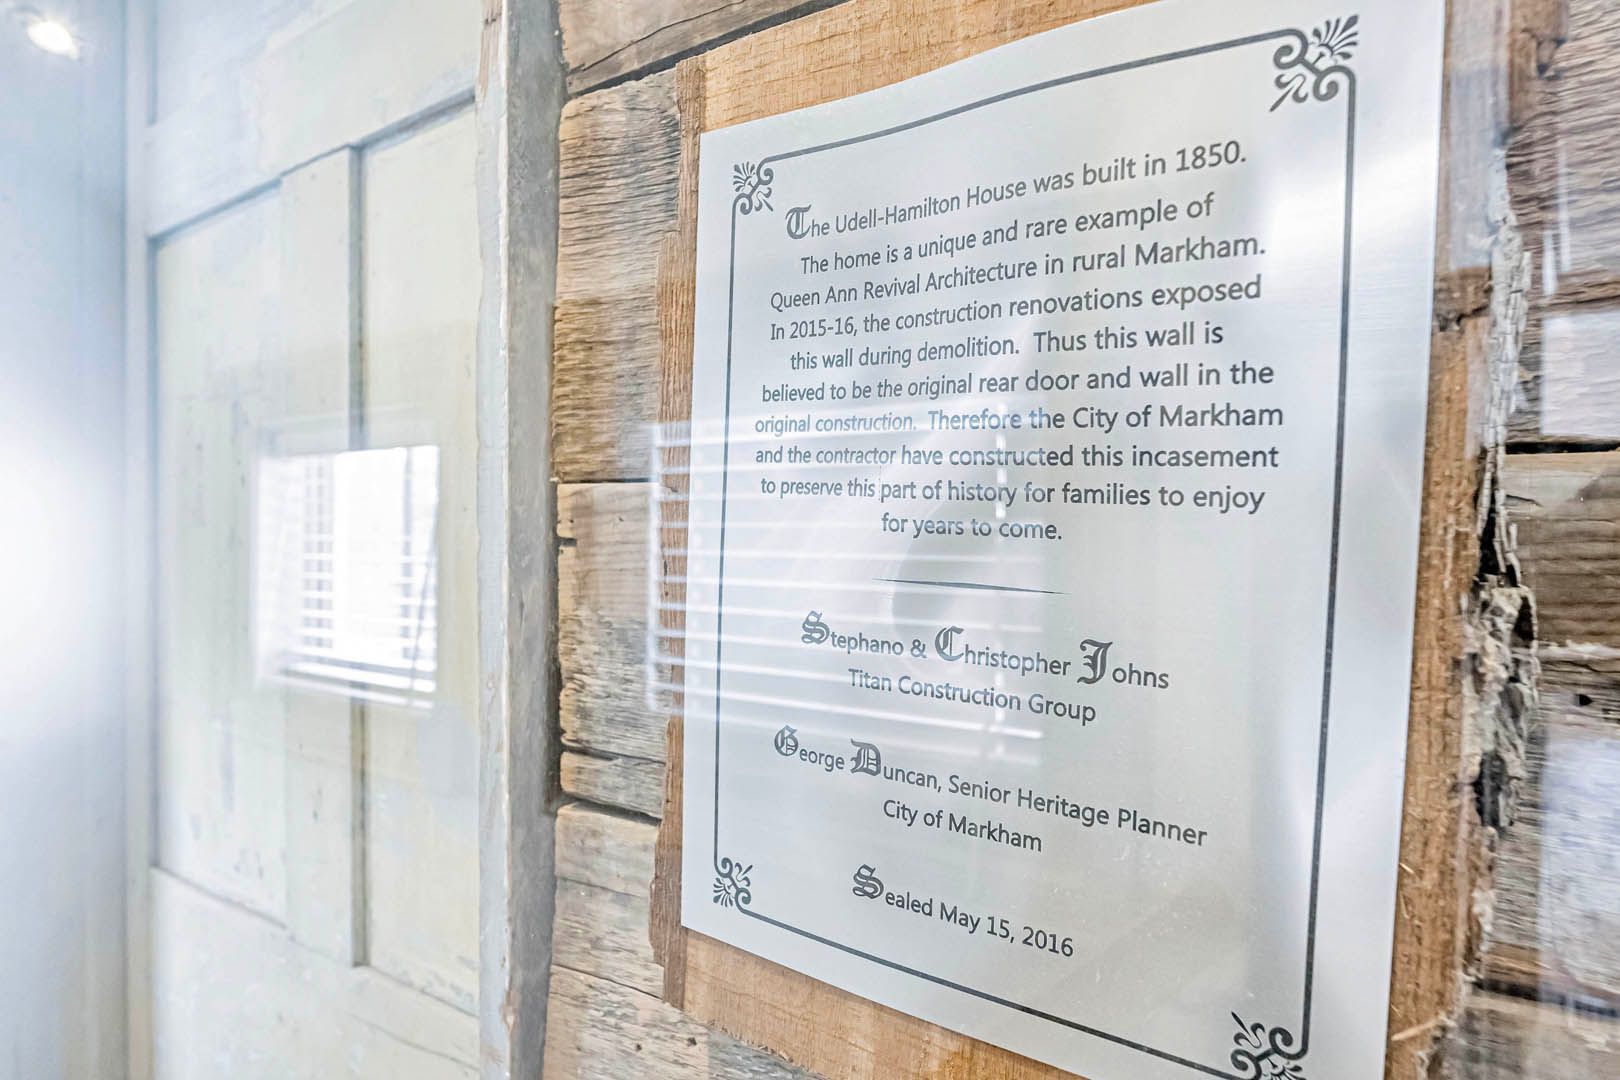 The Udell-Hamilton House was built in 1850.
The home is a unique and rare example of
Queen Ann Revival Architecture in rural Markham.
In 2015-16, the construction renovations exposed
this wall during demolition. Thus this wall is
believed to be the original rear door and wall in the
original construction. Therefore the City of Markham
and the contractor have constructed this incasement
to preserve this part of history for families to enjoy
for years to come.
Stephano & Christopher Johns
Titan Construction Group
George Duncan, Senior Heritage Planner
City of Markham
Sealed May 15, 2016